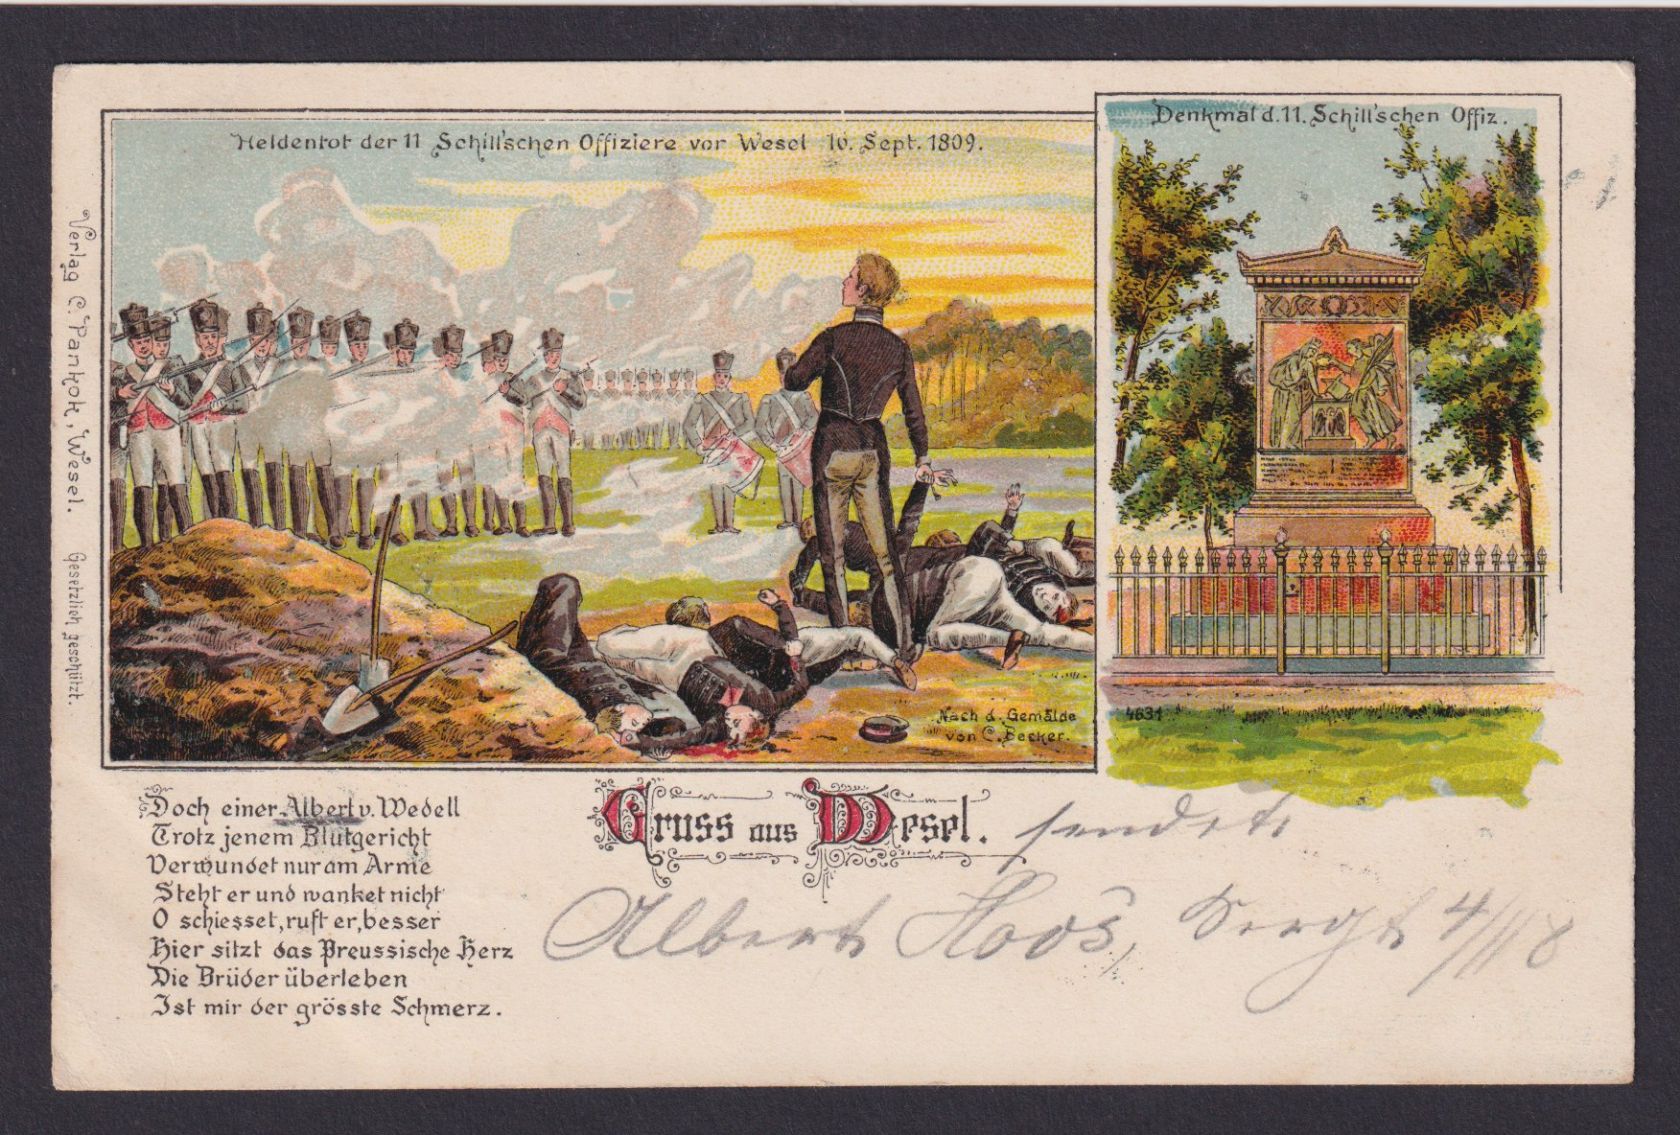 Heldentot der 11 Schill'schen Offiziere vor Wesel 16. Sept. 1809.
Denkmal d. 11. Schill'schen Offiz.
Verlag C. Pankok, Wesel. Gesetzlich geschützt.
Nach d. Gemälde
von C. Becker.
4631
Doch einer Albert v. Wedell
Trotz jenem Blutgericht
Verwundet nur am Arme
Steht er und wanket nicht
O schiesset, ruft er, besser
Hier sitzt das Preussische Herz
Die Brüder überleben
Ist mir der grösste Schmerz.
Gruss aus Wesel. sendet
Albert Hoos, Sergt 4/